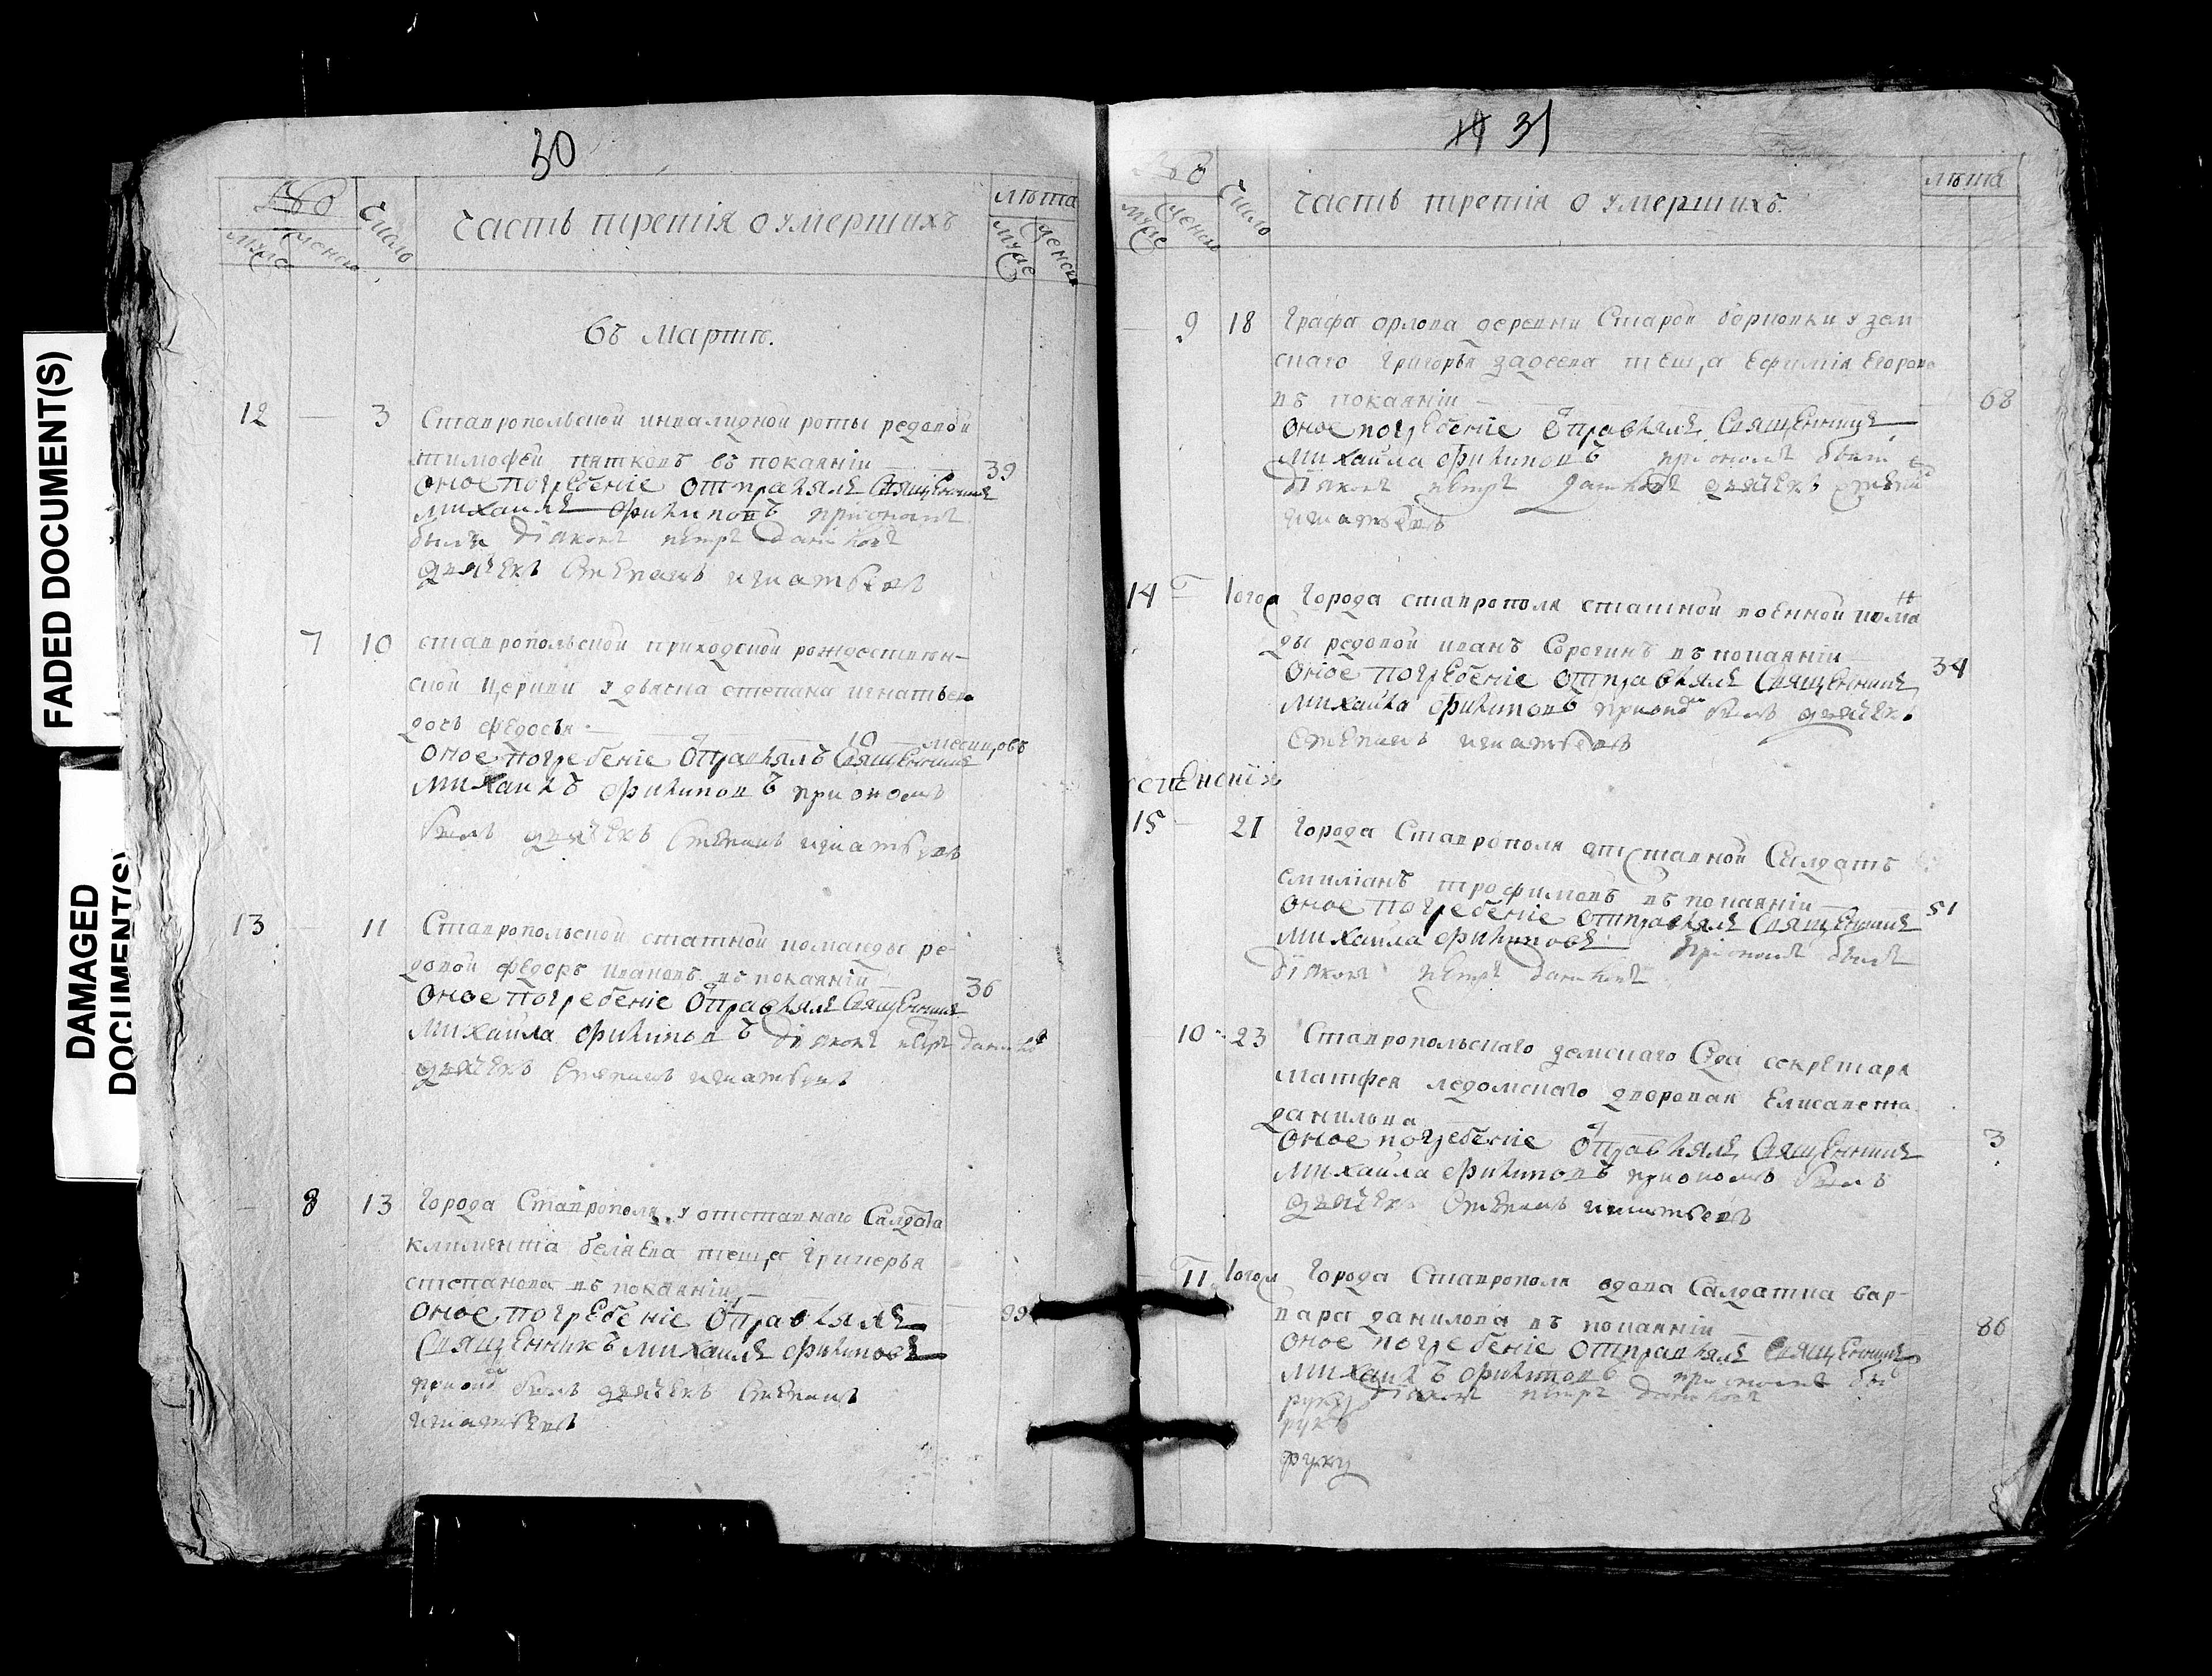 FADED DOCUMENT(S)
DAMAGED
DOCUMENT(S)
30
Число
лѣта
часть третія о умершихъ
муже
женск
муже
женск
въ мартѣ.
12 3 Ставропольской инвалидной роты редовой
тимофей пятковъ въ покаяніи 39
оное погребеніе отправлялъ Священникъ
михаилъ филиповъ приономъ
были діяконъ петръ
дьячекъ Степанъ игнатьевъ
7 10 ставропольской приходской рождествен-
ской церкви у дьячка степана игнатьева
дочь федосья 10 месяцовъ
оное погребеніе отправлялъ Священникъ
михаилъ филиповъ приономъ
былъ дьячекъ Степанъ игнатьевъ
13 11 Ставропольской статной команды ре-
довой федоръ ивановъ въ покаяніи 36
оное погребеніе отправлялъ Священникъ
михаила филиповъ діяконъ петръ
дьячекъ Степанъ игнатьевъ
8 13 города Ставрополя у отставнаго Салдата
климента беляева теща
степанова въ покаяніи
оное погребеніе отправлялъ 99
Священникъ михаилъ филиповъ
былъ дьячекъ Степанъ
игнатьевъ
31
Число
лѣта
часть третія о умершихъ.
муже
женск
9 18 графа орлова деревни Старой у зем
скаго григорья теща Ефимія Егорова
въ покаяніи 68
оное погребеніе отправлялъ Священникъ
михаила филиповъ приономъ были
діяконъ петръ дьячекъ
игнатьевъ
14 1ого города ставрополя статной военной кома
ды редовой иванъ Сорогинъ въ покаяніи
оное погребеніе отправлялъ Священникъ 34
михаила филиповъ былъ дьячекъ
Степанъ игнатьевъ
15 21 города Ставрополя отставной Салдатъ
емиліанъ трофимовъ въ покаяніи
оное погребеніе отправлялъ Священникъ 51
михаила филиповъ приономъ былъ
діяконъ петръ
10 23 Ставропольскаго земскаго Суда секретаря
матфея ледомскаго дворовая Елисавета
данилова
оное погребеніе отправлялъ Священникъ 3
михаила филиповъ приономъ былъ
дьячекъ Степанъ игнатьевъ
11 города Ставрополя вдова Салдатка вар-
вара данилова въ покаяніи 86
оное погребеніе отправлялъ Священникъ
михаилъ филиповъ приономъ
діяконъ петръ
руку
рукъ
руку